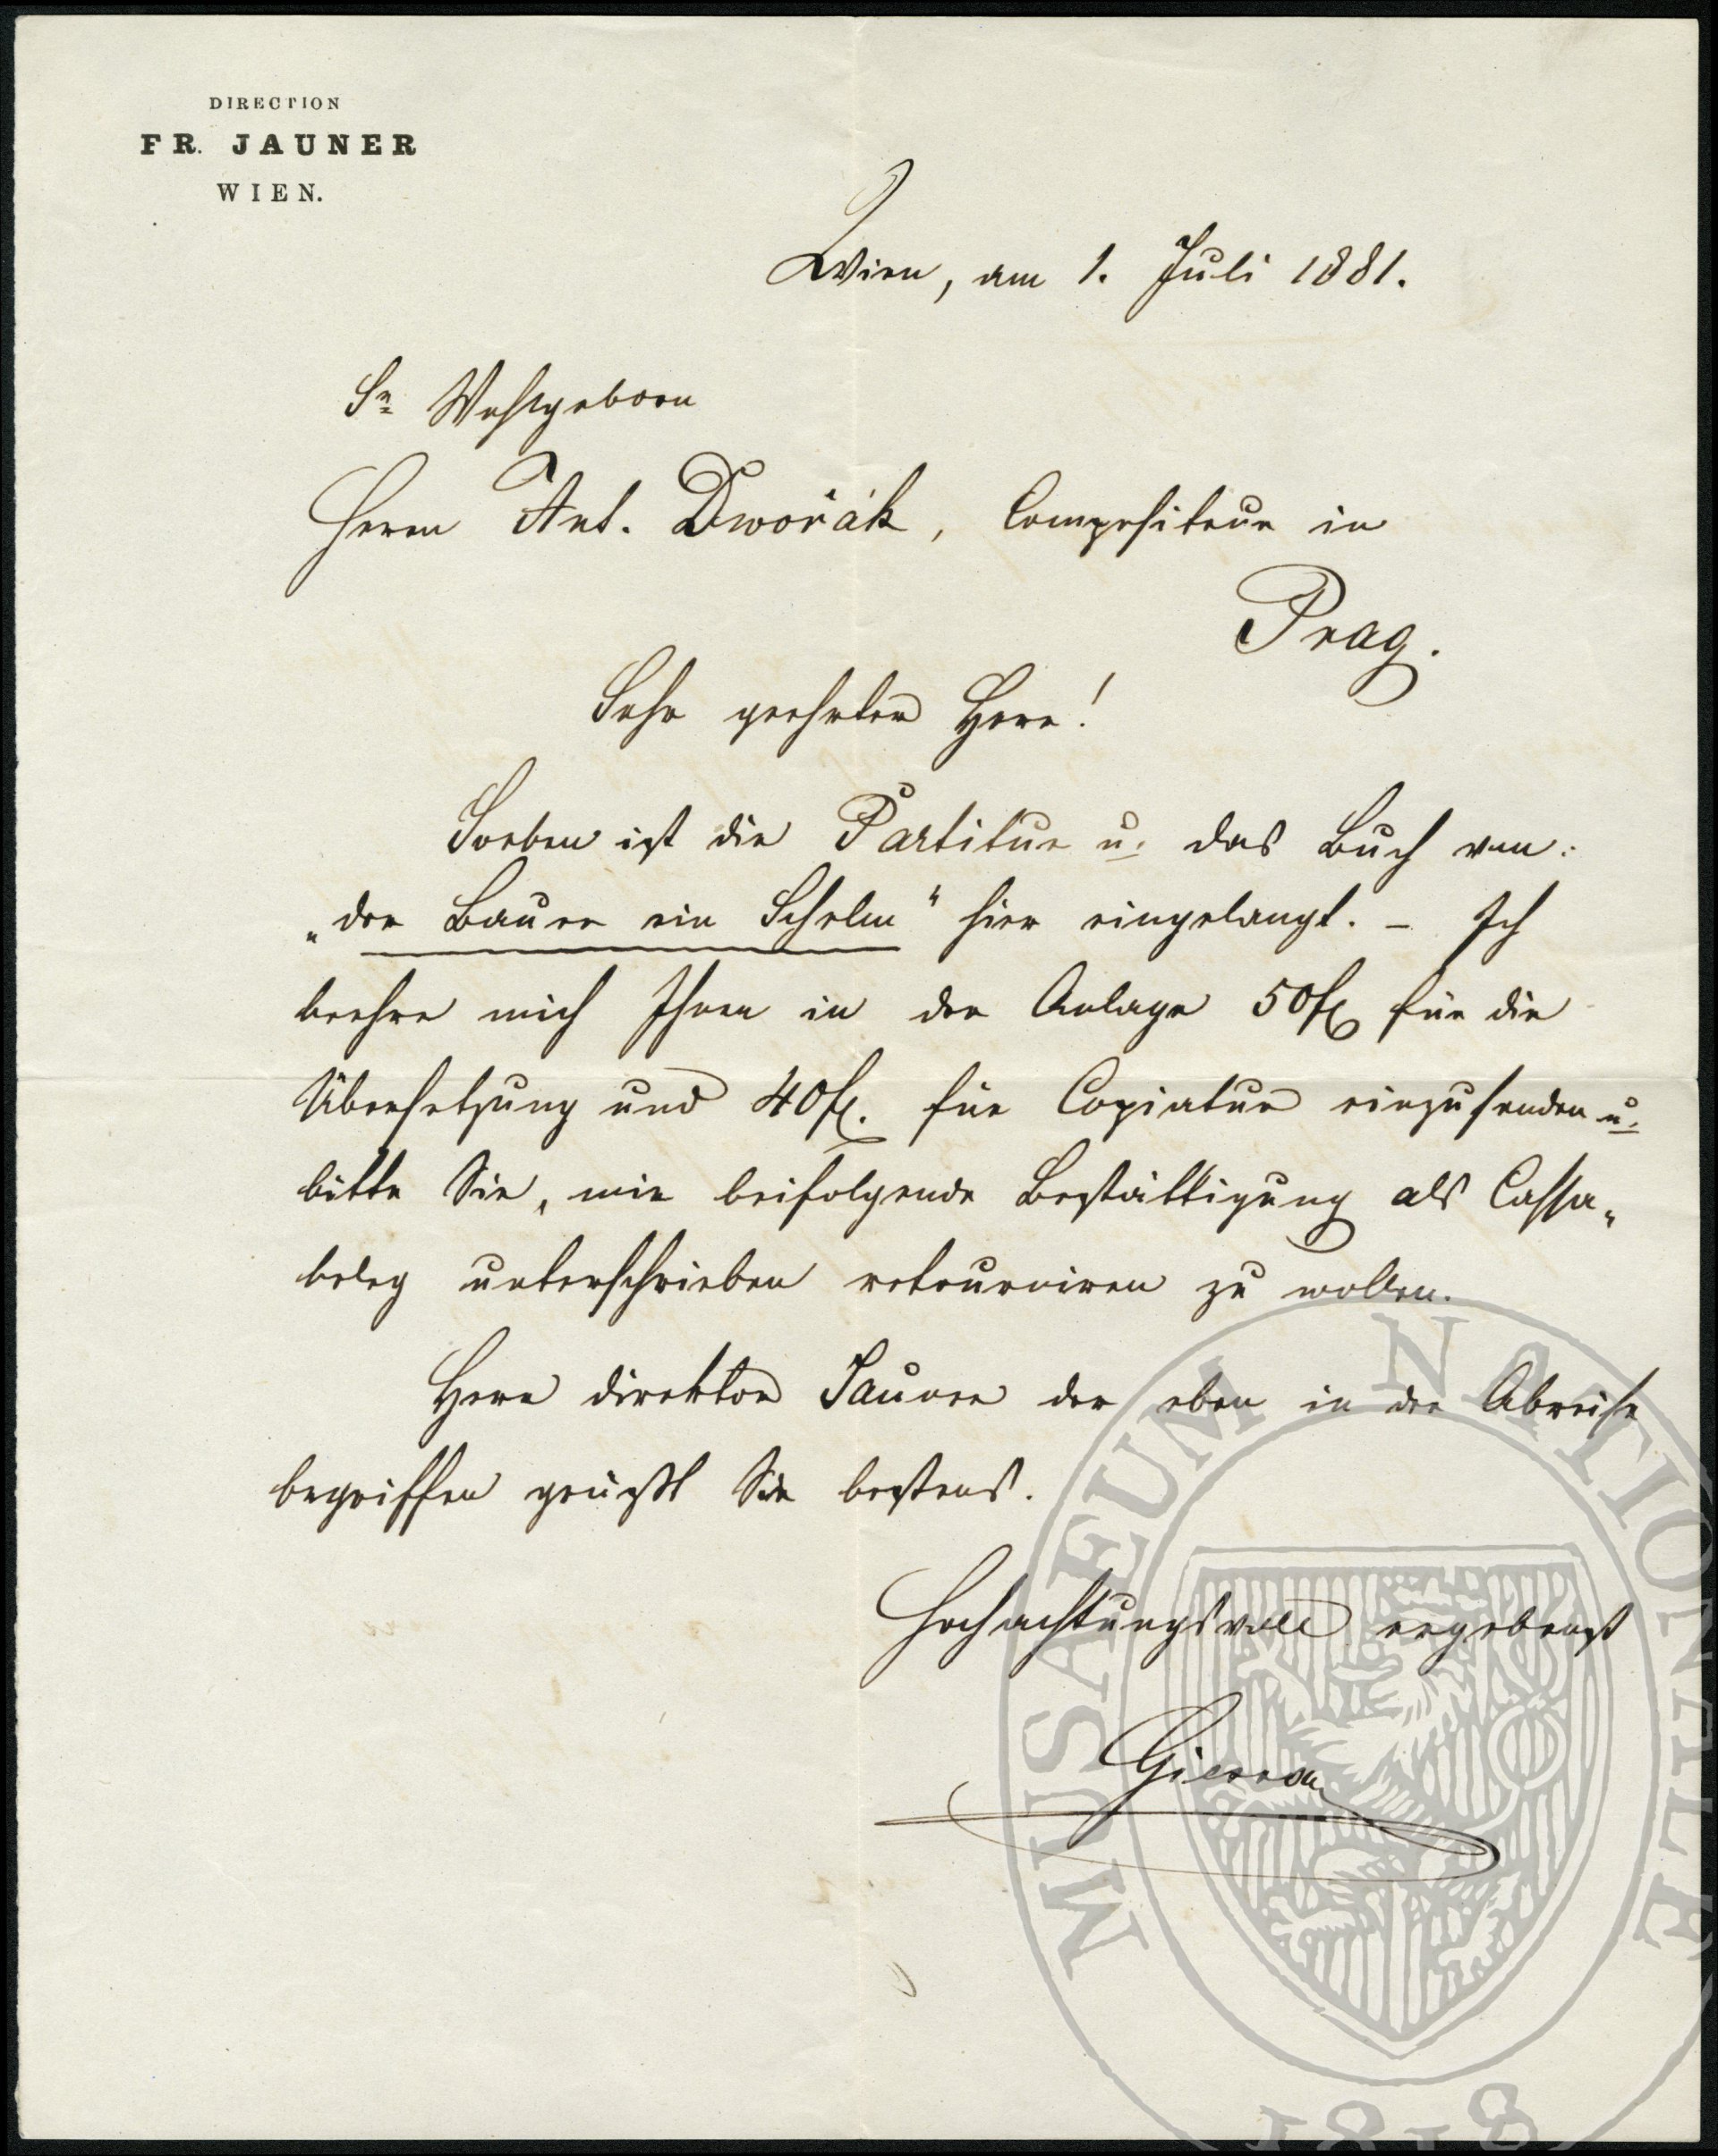 DIRECTION
FR. JAUNER
WIEN.
Wien, am 1. Juli 1881.
Sr Wohlgeborn
Herrn Ant. Dwořák, Compositeur in
Prag.
Sehr geehrter Herr!
Soeben ist die Partitur u. das Buch von:
„der Bauer ein Schelm" hier eingelangt. – Ich
beehre mich Ihnen in der Anlage 50 fl für die
Übersetzung und 40 fl. für Copiatur einzusenden u.
bitte Sie, mir beifolgende Bestättigung als Cassa„
beleg unterschrieben retourniren zu wollen.
Herr Direktor Jauner der eben in der Abreise
begriffen grüßt Sie bestens.
Hochachtungsvoll ergebenst
MUSAEUM NATIONALE
1818